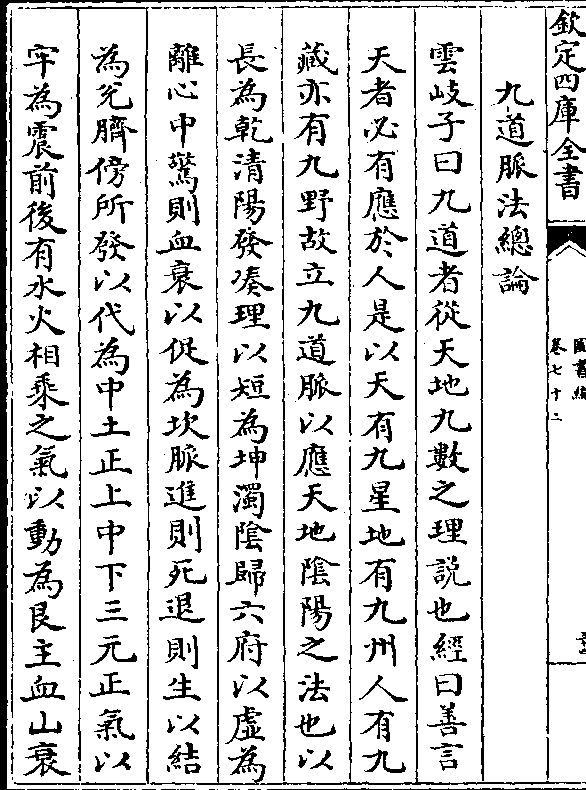 欽定四庫全書
圖書編
卷七十二
九道脈法總論
雲岐子曰九道者從天地九數之理說也經曰善言
天者必有應於人是以天有九星地有九州人有九
藏亦有九野故立九道脈以應天地陰陽之法也以
長為乾清陽發凑理以短為坤濁陰歸六府以虛為
離心中驚則血衰以促為坎脈進則死退則生以結
為兊臍傍所發以代為中土正上中下三元正氣以
牢為震前後有水火相乘之氣以動為艮主血山衰